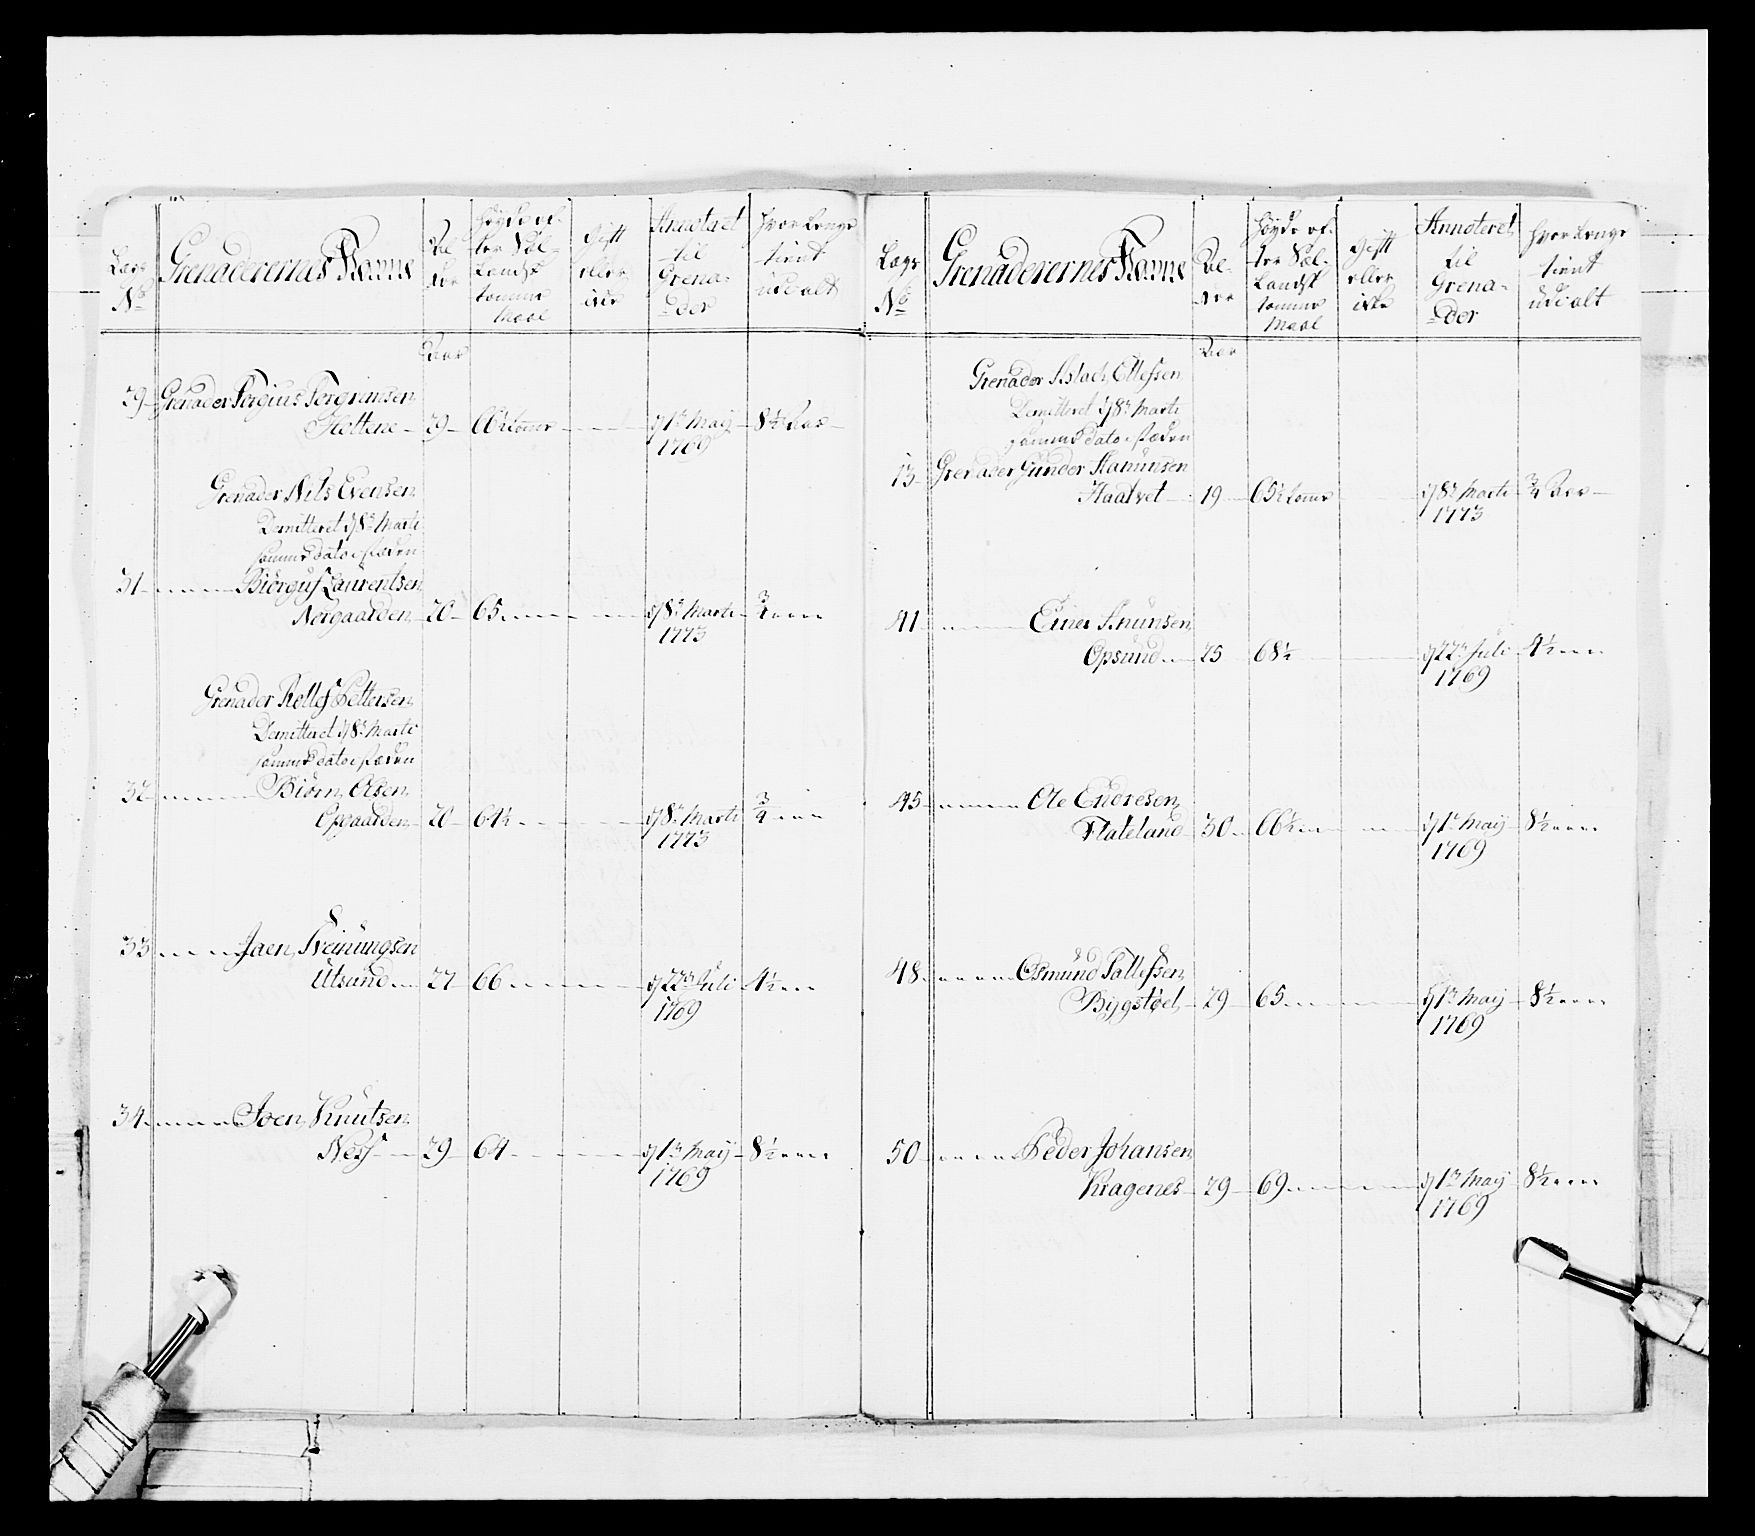 Lægs
No
Grenaderernes Nafne
Al-
der
Høyde ef-
ter Sæl-
Landsk
tomme
Maal
Gift
eller
ikke
Annoteret
til
Grena-
der
Hvor Længe
tient
udi alt
Aar
29 Grenader Torgius Torgrimsen
29 66½ tomr d 1te Maij 8½ Aar
1769
Grenader Nils Evensen
Demitteret d 8de Martii
samme dato isteden
31 Biørgus Laurentsen
Norgaarden 20 65 d 8de Martii ¾
1773
Grenader Rollef Pettersen
Demitteret d 8de Martii
samme dato isteden
32 Biørn Olsen
Opgaarden 20 64½ d 8de Martii ¾
1773
33 Joen Sveinungsen
Utsund 27 66 d 22de Juli 4½
1769
34 Joen Knutsen
Ness 29 64 d 1te Maij 8½
1769
Lægs
No
Grenaderernes Nafne
Al-
der
Høyde ef-
ter Sæl-
Landsk
tomme
Maal
Gift
eller
ikke
Annoteret
til
Grena-
der
Hvor Længe
tient
udi alt
Aar
Grenader Aslach Ellefsen
Demitteret d 8de Martii
samme dato isteden
13 Grenader Gunder
Haatvet 19 65½ tomr d 8de Martii ¾ Aar
1773
41 Einer Knudsen
Opsund 25 68½ d 22de Juli 4½
1769
45 Ole Endresen
Flateland 30 66½ d 1te Maij 8½
1769
48 Osmund Tallefsen
Bygstøel 29 65 d 1te Maij 8½
1769
50 Peder Johansen
Kragenes 29 69 d 1te Maij 8½
1769